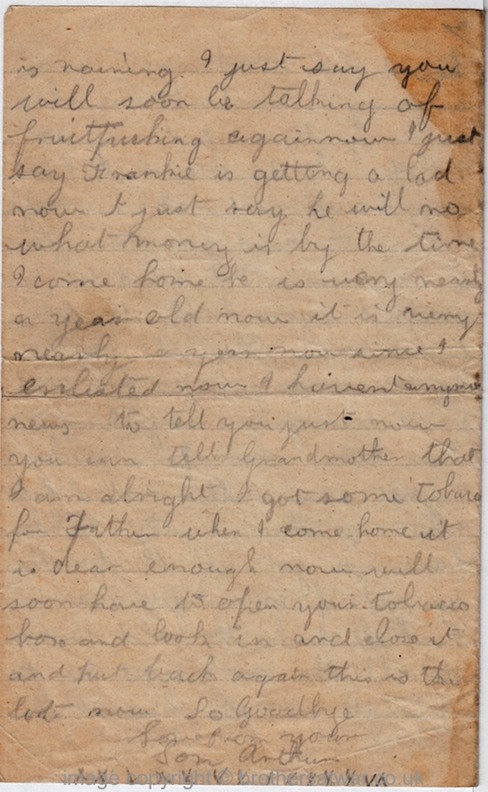 is raining. I just say you
will soon be talking of
fruitpicking again now I just
say Frankie is getting a lad
now I just say he will no
what money is by the time
I come home he is very nearly
a year old now it is very
nearly a year now since I
enlisted now I havent anymore
news to tell you just now
you can tell Grandmother that
I am alright I got some tobaco
for Father when I come home it
is dear enough now will
soon have to open your tobacco
box and look in and close it
and put back again this is the
lot now So Goodbye
Love from your
Son Arthur
image copyright © brothersatwar.co.uk